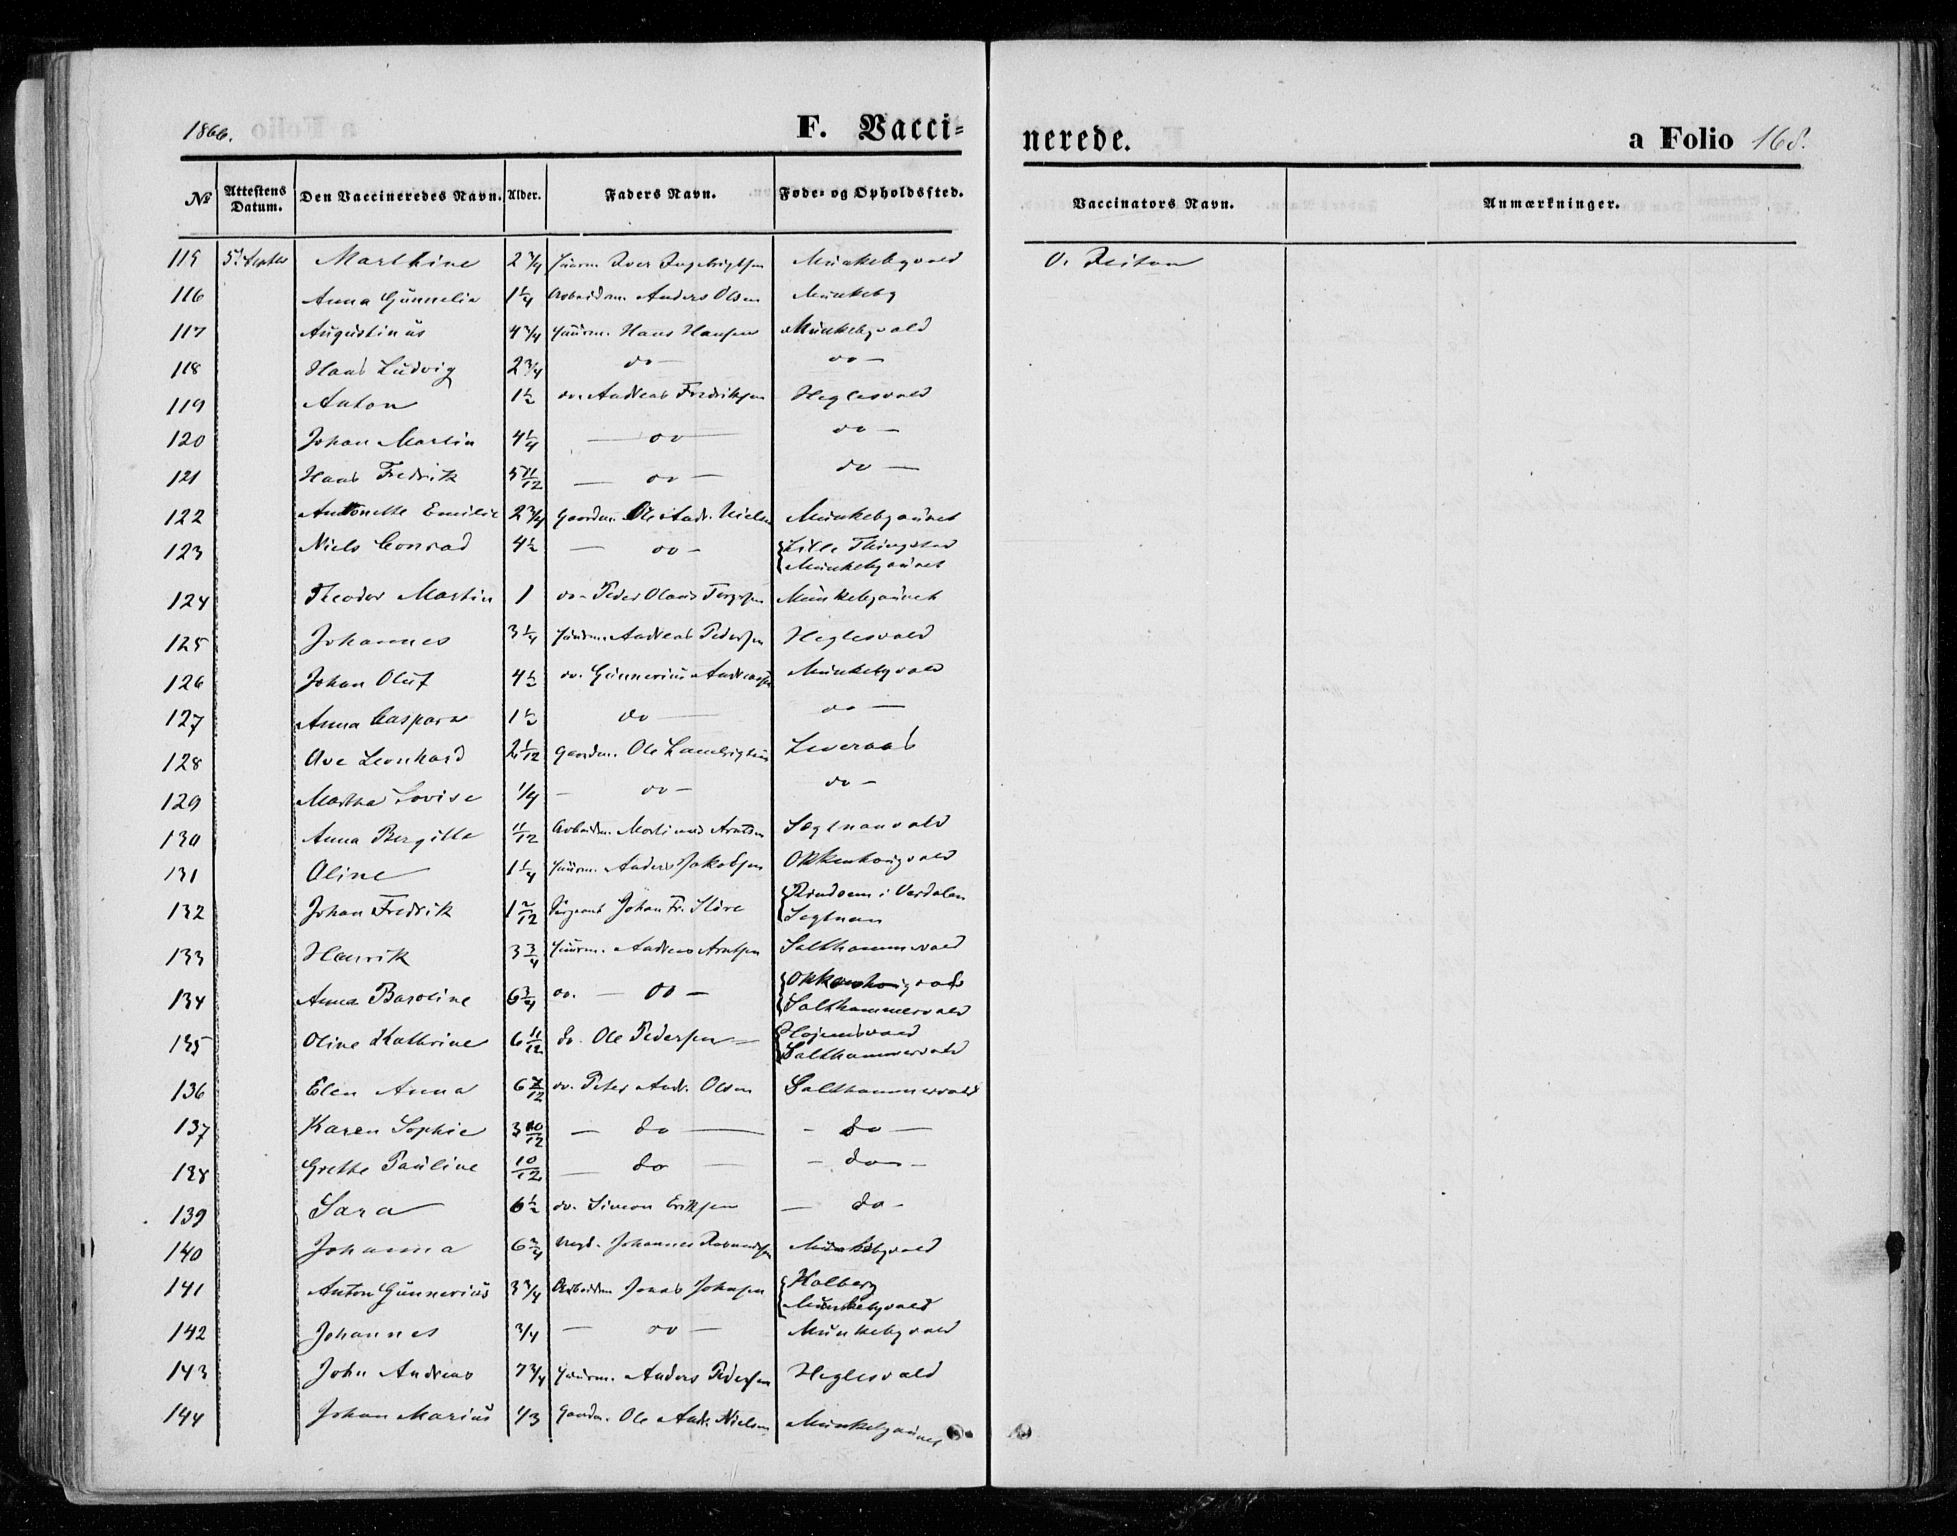 1866. F. Vacci- nerede. a Folio 168.
№ Attestens Datum. Den Vaccineredes Navn. Alder. Faders Navn. Føde- og Opholdssted. Vaccinators Navn. Anmærkninger.
115 5te Septbr Marthine 2 3/4 Huusm. Iver Ingebrigtsen Munkebyvald O. Reitan
116 Anna Gunnelia 1 1/4 Arbeidsm. Anders Olsen Munkeby
117 Augustinus 4 3/4 Huusm. Hans Hansen Munkebyvald
118 Hans Ludvig 2 3/4 do — do —
119 Anton 1 1/2 do. Andreas Fredriksen Heglesvald
120 Johan Martin 4 1/4 — do — do —
121 Hans Fredrik 5 11/12 — do — do —
122 Antonette Emilie 2 3/4 Gaardm. Ole Andr. Nielsen Munkebyaunet
123 Niels Conrad 4 1/2 — do — Lille Thingstad
Munkebyaunet
124 Theodor Martin 1 do - Peder Olaus Munkebyaunet
125 Johannes 3 1/4 Huusm. Andreas Pedersen Heglesvald
126 Johan Oluf 4 1/2 do. Gunnerius Andreassen Munkebyvald
127 Anna Caspara 1 1/2 do — do —
128 Ove Leonhard 2 1/12 Gaardm. Ole Lambrigtsen Leveraas
129 Martha Lovise 1/4 — do — do —
130 Anna Bergitte 11/12 Arbeidsm. Martinus Arntsen Segtnanvald
131 Oline 1 1/4 Huusm. Anders Jakobsen Okkenhougvald
132 Johan Fredrik Johan Fr. Rindsem i Verdalen
Segtnan
133 Henrik 3 3/4 Huusm. Andreas Arntsen Salthammervald
134 Anna Baroline 6 3/4 do. — do — Okkenhougvald
Salthammervald
135 Oline Kathrine 6 11/12 do. Ole Pedersen — Højemsvald
Salthammervald
136 Elen Anna 6 7/12 do. Peter Andr. Olsen Salthammervald
137 Karen Sophie 3 10/12 — do — - do —
138 Grethe Pauline 10/12 — do — - do -
139 Sara 6 1/2 do. Simon Eriksen — do -
140 Johanna 6 3/4 Johannes Munkebyvald
141 Anton Gunnerius 3 3/4 Arbeidsm Jonas Johnsen Halberg
Munkebyvald
142 Johannes 3/4 — do — Munkebyvald
143 John Andreas 7 3/4 Huusm. Anders Pedersen Heglesvald
144 Johan Marius 1/3 Gaardm. Ole Andr. Nielsen Munkebyaunet